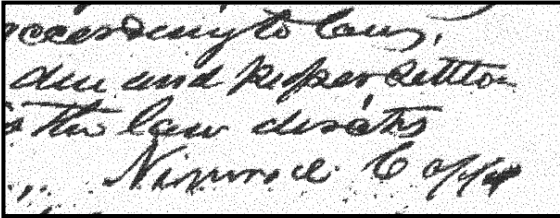 according to law,
due and proper
the law directs
Nimrod Copp